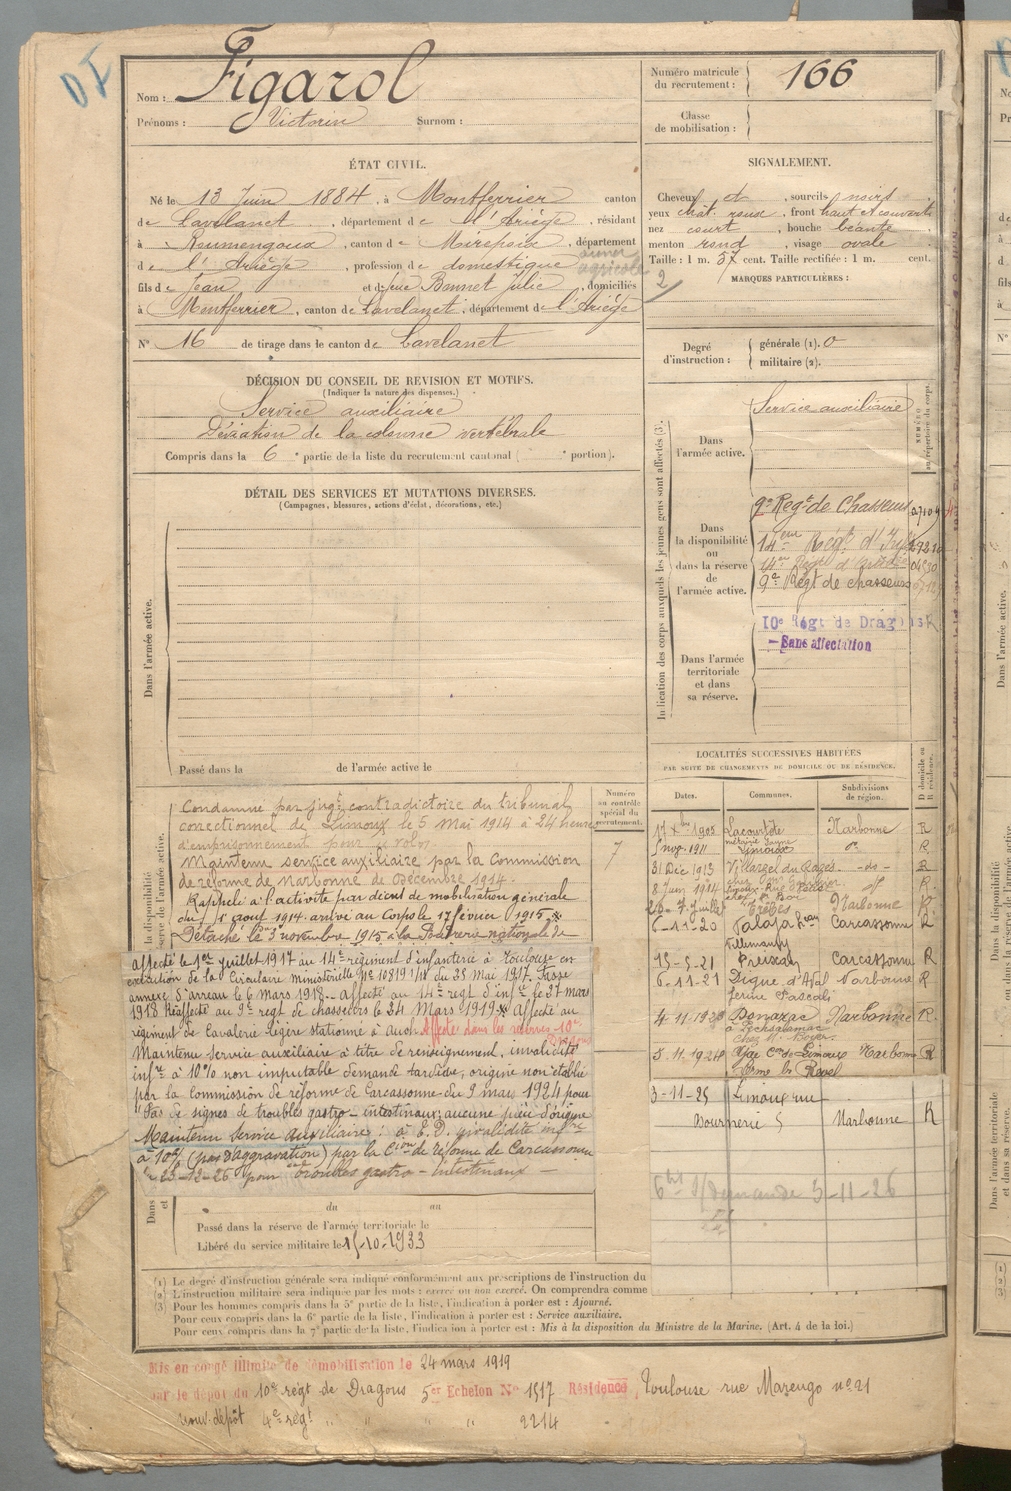 Nom : Figarol
Prénoms : Victorin Surnom :
Numéro matricule du recrutement : 166
Classe de mobilisation :
ÉTAT CIVIL.
Né le 13 Juin 1884, à Montferrier canton
de Lavelanet, département de l'Ariège, résidant
à Roumengoux, canton de Mirepoix, département
de l'Ariège, profession de domestique agricole
fils de Jean et de feue Bonnet Julie, domiciliés
à Montferrier, canton de Lavelanet, département de l'Ariège
N° 16 de tirage dans le canton de Lavelanet
SIGNALEMENT.
Cheveux et, sourcils noirs
yeux chât. roux, front haut et couvert
nez court, bouche béante
menton rond, visage ovale
Taille : 1 m. 57 cent. Taille rectifiée : 1 m. cent.
MARQUES PARTICULIÈRES :
2
Degré d'instruction : générale (1). 0
militaire (2).
DÉCISION DU CONSEIL DE REVISION ET MOTIFS.
(Indiquer la nature des dispenses.)
Service auxiliaire
Déviation de la colonne vertébrale
Compris dans la 6e partie de la liste du recrutement cantonal ( e portion).
DÉTAIL DES SERVICES ET MUTATIONS DIVERSES.
(Campagnes, blessures, actions d'éclat, décorations, etc.)
Dans l'armée active.
Passé dans la de l'armée active le
Indication des corps auxquels les jeunes gens sont affectés (3).
NUMÉRO au répertoire du corps.
Dans l'armée active.
Service auxiliaire
Dans la disponibilité ou dans la réserve de l'armée active.
9e Regt de Chasseurs
14eme Regt d'Inf
9e Régt de chasseurs
Dans l'armée territoriale et dans sa réserve.
10e Régt de Dragons
Sans affectation
LOCALITÉS SUCCESSIVES HABITÉES
PAR SUITE DE CHANGEMENTS DE DOMICILE OU DE RÉSIDENCE.
Dates. Communes. Subdivisions de région. D domicile ou R résidence.
17 Xbre 1908 Lacourtète Narbonne R
5 nov. 1911 Limoux do R
31 Déc 1913 Villarzel du Razès -do- R
8 Juin 1914 R
Trèbes Narbonne R
6-11-20 Palaja Carcassonne R
15-5-21 Preixan Carcassonne R
6-11-21 Digne d'Aval Narbonne R
ferme Pascali
4.11.1923 Donazac Narbonne R.
chez M. Boyer
5.11.1924 Ajac Con de Limoux Narbonne R
3-11-25 Limoux rue
Bournerie 5 Narbonne R
demande 5-11-26
Numéro au contrôle spécial du recrutement.
7
Condamné par jugt contradictoire du tribunal
correctionnel de Limoux le 5 Mai 1914 à 24 heures
d'emprisonnement pour vol
Maintenu service auxiliaire par la Commission
de réforme de Narbonne de Décembre 1914.
Rappelé à l'activité par décret de mobilisation générale
du 1er août 1914. arrivé au Corps le 17 février 1915
Détaché le 3 novembre 1915 à la Poudrerie nationale de
Affecté le 1er juillet 1917 au 14e régiment d'infanterie à Toulouse en
exécution de la Circulaire ministérielle N° 10819 1/11 du 25 Mai 1917. Passé
annexe d'Arreau le 6 mars 1918. Affecté au 14e regt d'infre le 27 mars
1918 Réaffecté au 9e regt de chasseurs le 24 Mars 1919. Affecté au
régiment de Cavalerie légère stationné à Auch. Affecté dans les réserves 10e
Dragons
Maintenu service auxiliaire à titre de renseignement, invalidité
infre à 10% non imputable demande tardive, origine non établie
par la Commission de réforme de Carcassonne du 9 mars 1924 pour
"Pas de signes de troubles gastro-intestinaux; aucune pièce d'origine
Maintenu Service Auxiliaire : à E.D. invalidité infre
à 10% (pas d'aggravation) par la Cion de réforme de Carcassonne
pour "troubles gastro-intestinaux"
du au
Passé dans la réserve de l'armée territoriale le
Libéré du service militaire le 15-10-1933
(1) Le degré d'instruction générale sera indiqué conformément aux prescriptions de l'instruction du
(2) L'instruction militaire sera indiquée par les mots : exercé ou non exercé. On comprendra comme
(3) Pour les hommes compris dans la 5e partie de la liste, l'indication à porter est : Ajourné.
Pour ceux compris dans la 6e partie de la liste, l'indication à porter est : Service auxiliaire.
Pour ceux compris dans la 7e partie de la liste, l'indication à porter est : Mis à la disposition du Ministre de la Marine. (Art. 4 de la loi.)
Mis en congé illimité de démobilisation le 24 mars 1919
par le dépôt du 10e régt de Dragons 5er Echelon N° 1517 Résidence, Toulouse rue Marengo n° 21
nouv. dépôt 4e régt " " " 2214